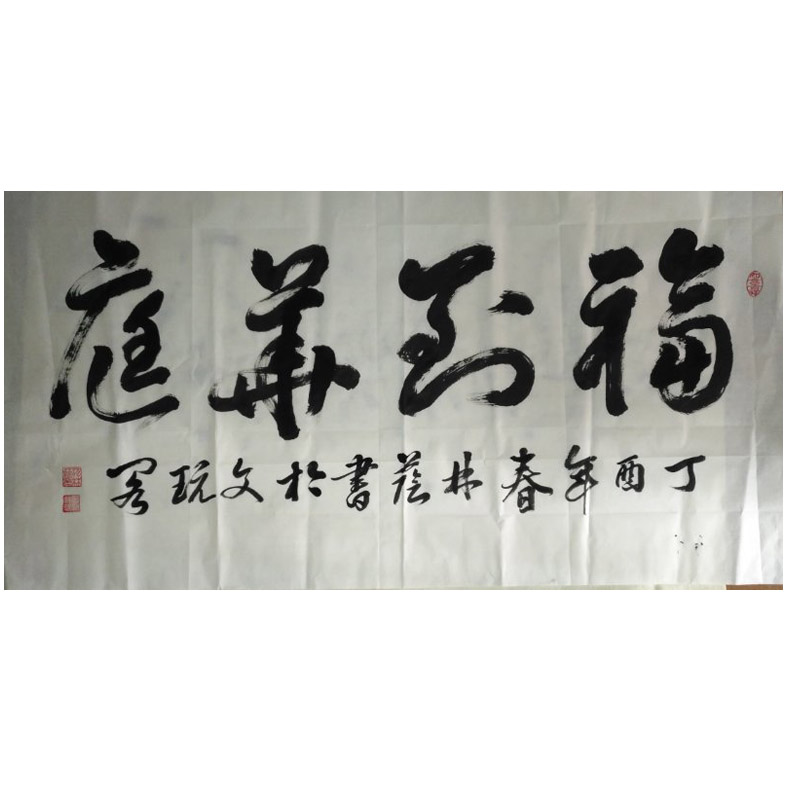 福到華庭
丁酉年春林蔭書於文玩閣